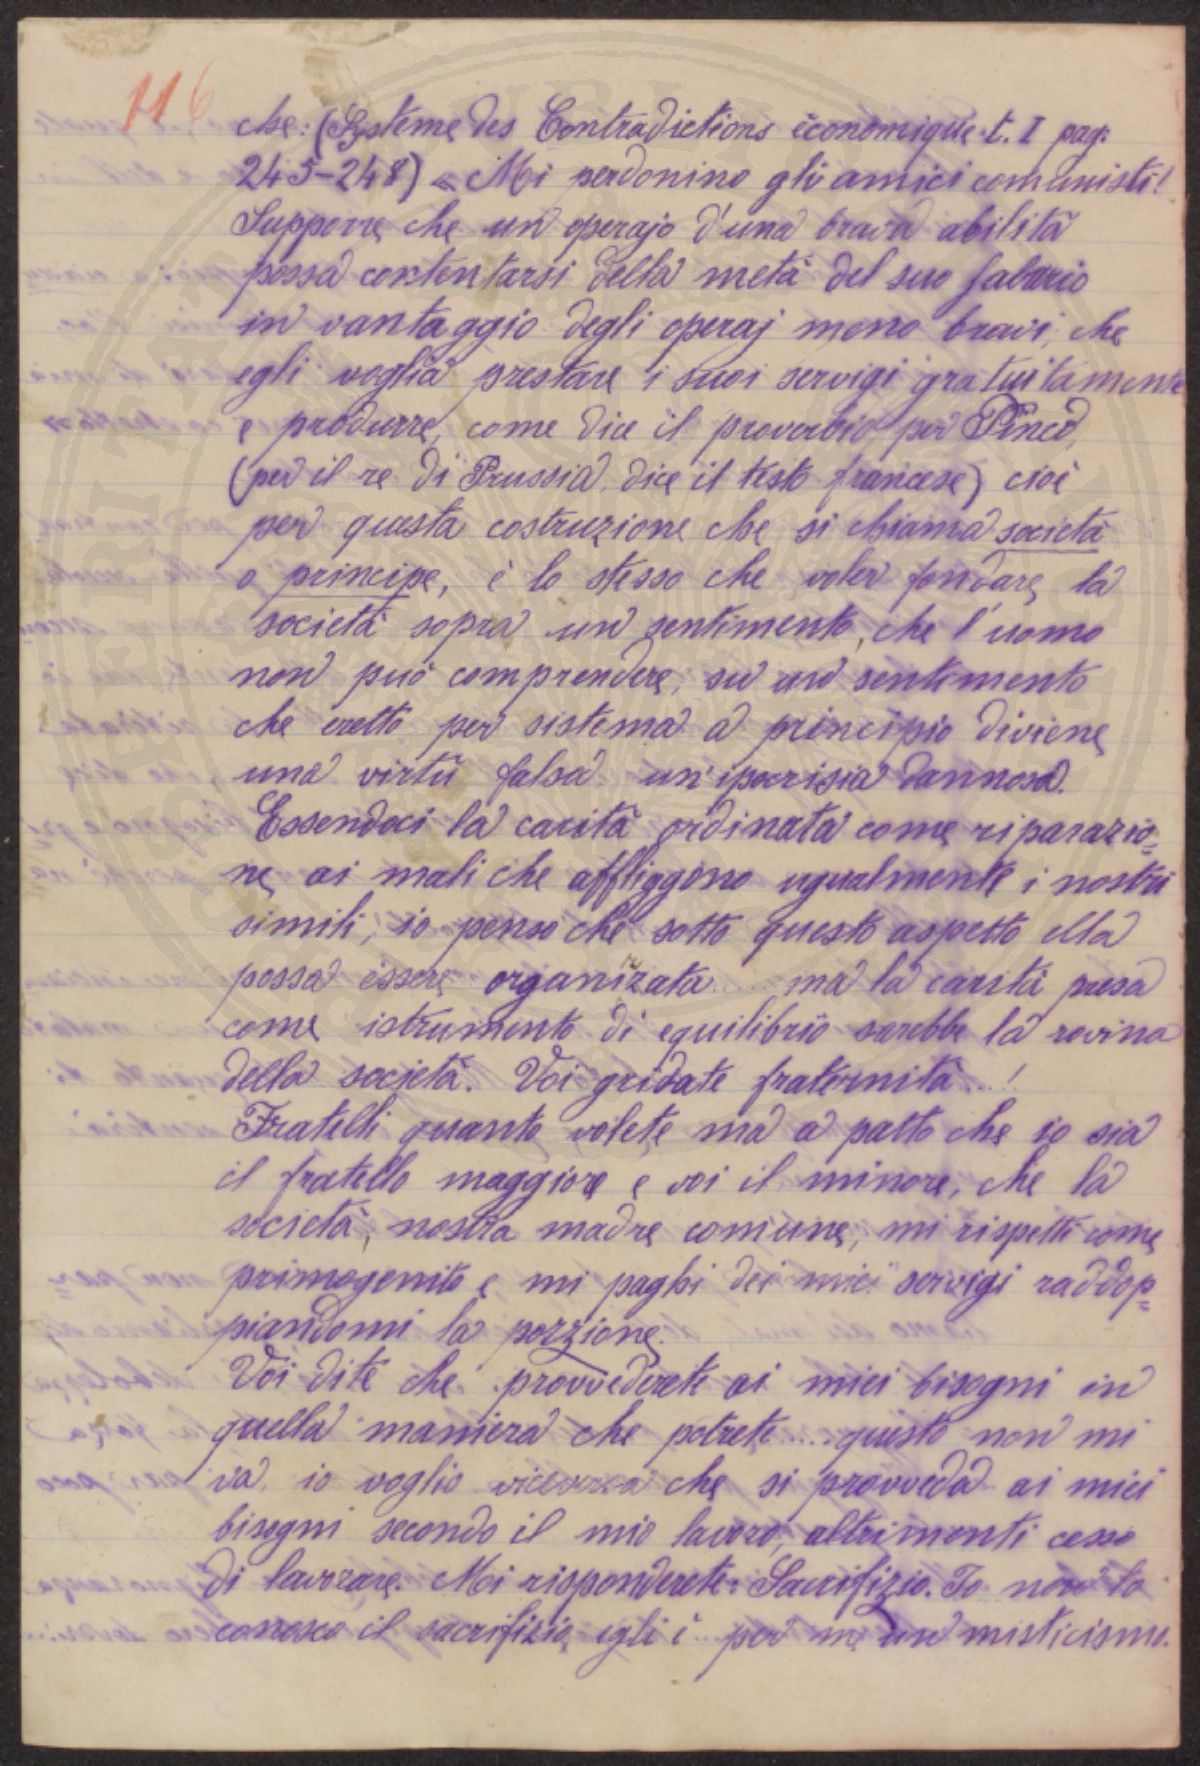 116
che: (Système des Contradictions économique t. I pag:
245-248) « Mi perdonino gli amici comunisti!
Supporre che un operajo d'una brava abilità
possa contentarsi della metà del suo salario
in vantaggio degli operaj meno bravi, che
egli voglia prestare i suoi servigi gratuitamente
e produrre, come dice il proverbio, per Pinco,
(per il re di Prussia, dice il testo francese) cioè
per questa costruzione che si chiama società
o principe, è lo stesso che voler fondare la
società sopra un sentimento, che l'uomo
non può comprendere, su un sentimento
che eretto per sistema a principio diviene
una virtù falsa un'ipocrisia dannosa.
Essendoci la carità ordinata come riparazio=
ne ai mali che affliggono ugualmente i nostri
simili, io penso che sotto questo aspetto ella
possa essere organizzata.... ma la carità presa
come istrumento di equilibrio sarebbe la rovina
della società. Voi gridate fraternità...!
Fratelli quanto volete ma a patto che io sia
il fratello maggiore e voi il minore, che la
società, nostra madre comune, mi rispetti come
primogenito e mi paghi dei miei servigi raddop=
piandomi la porzione.
Voi dite che provvederete ai miei bisogni in
quella maniera che potrete.....questo non mi
va, io voglio viceversa che si provveda ai miei
bisogni secondo il mio lavoro, altrimenti cesso
di lavorare. Mi risponderete: Sacrifizio. Io non lo
conosco il sacrifizio, egli è per me un misticismo.